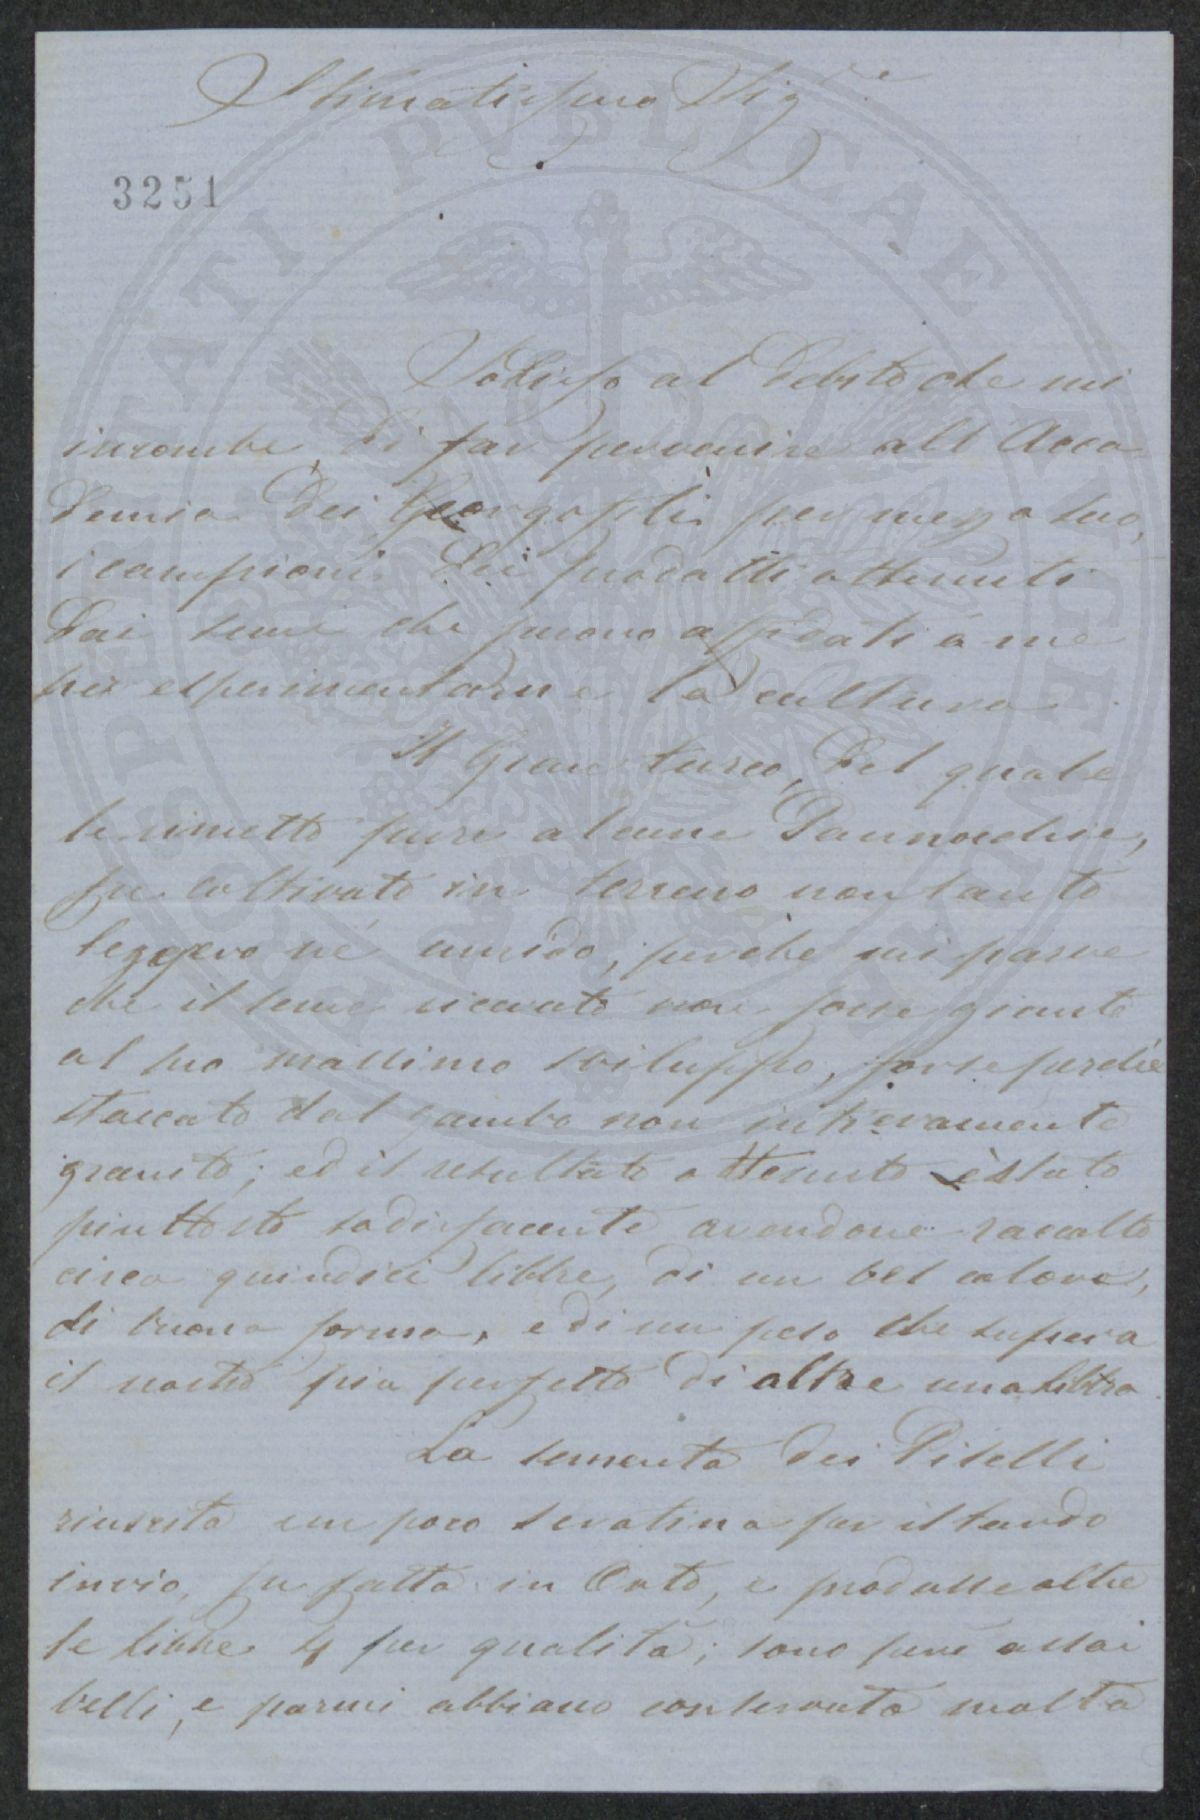 Stimatissimo Sig.e
3251
Sodisfo al debito che mi
incombe, di far pervenire all' Acca
demia dei Georgofili per mezzo suo,
i campioni dei prodotti ottenuti
dai semi che furono affidati a me
per esperimentarne la cultura.
Il Gran turco, del quale
le rimetto pure alcune Pannochie,
fu coltivato in terreno non tanto
leggero né umido, perchè mi parve
che il seme ricevuto non fosse giunto
al suo massimo sviluppo, forse perchè
staccato dal gambo non intieramente
granito; ed il resultato ottenuto è stato
piuttosto sodisfacente avendone raccolto
circa quindici libbre, di un bel colore,
di buona forma, e di un peso che supera
il nostro più perfetto di oltre una libbra.
La sementa dei Piselli
riuscita un poco serotina per il tardo
invio, fu fatta in Orto, e produsse oltre
le libbre 4 per qualità; sono pure assai
belli, e parmi abbiano conservata molta
PROSPERITATI PVBLICAE AVGENDAE